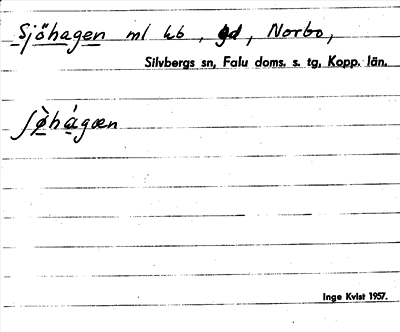 Sjöhagen ml hb, gd, Norbo,
Silvbergs sn, Falu doms. s. tg, Kopp. län.
ʃø̀hágæn
Inge Kvist 1957.